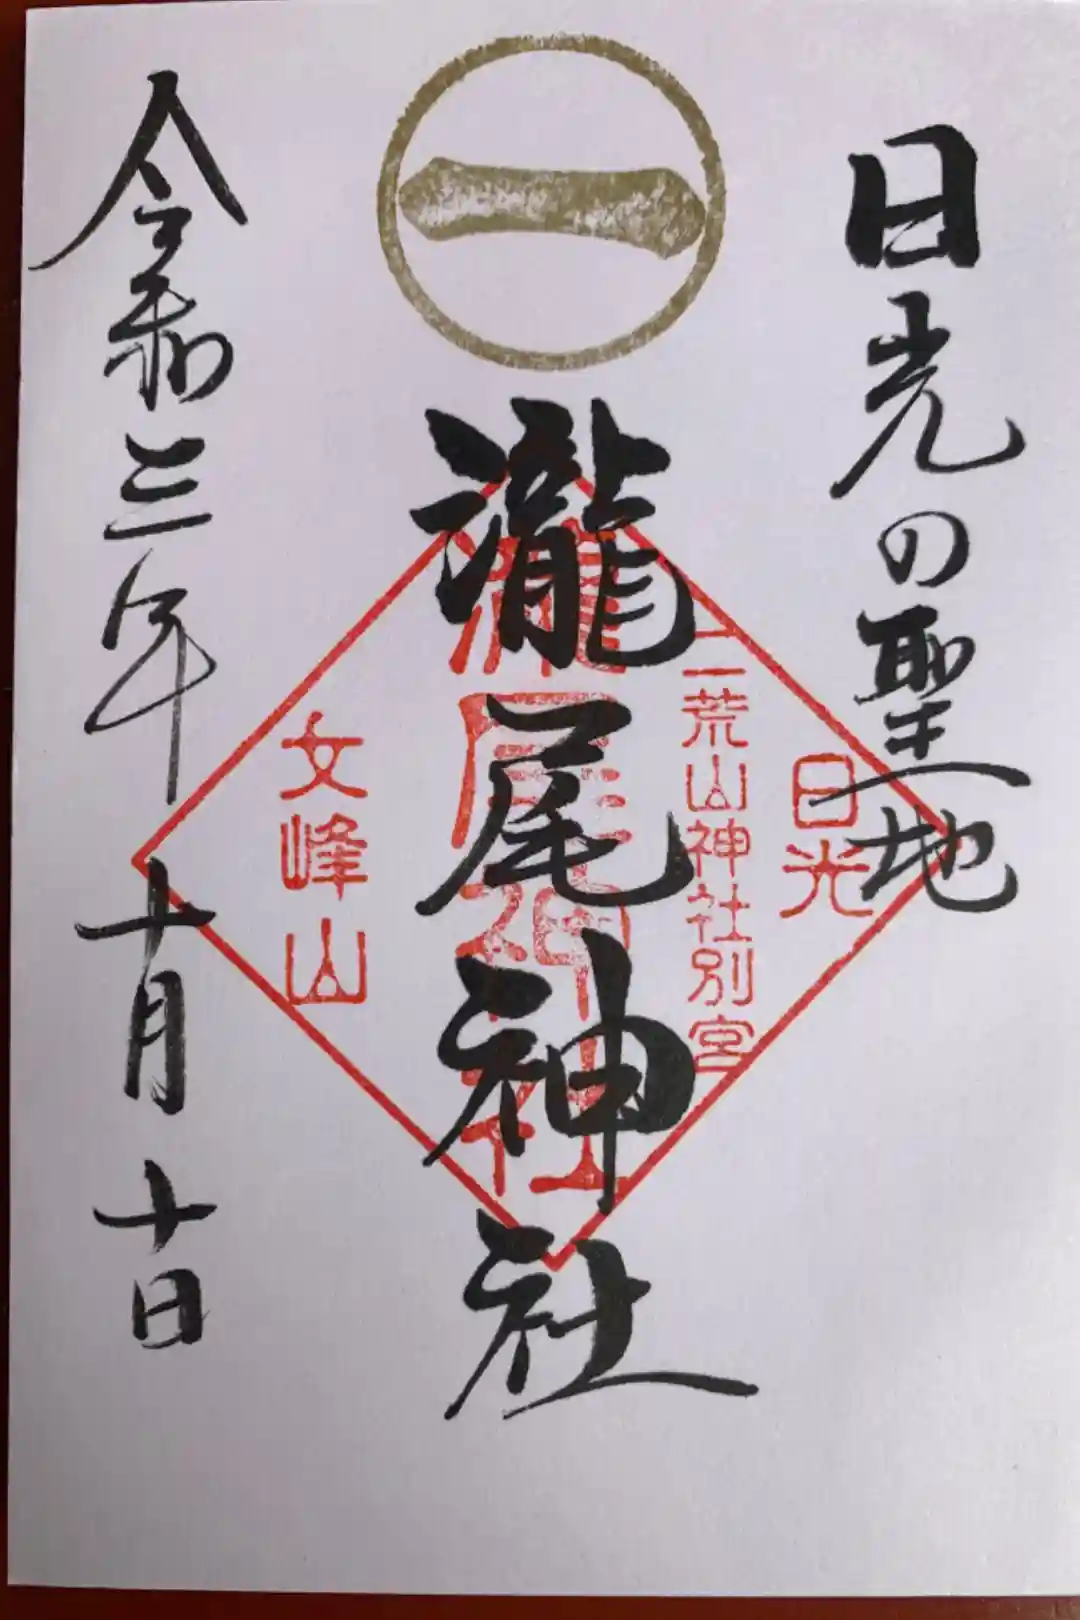 一
日光の聖地
日光
二荒山神社別宮
瀧尾神社
瀧尾神社
女峰山
令和三年十月十日